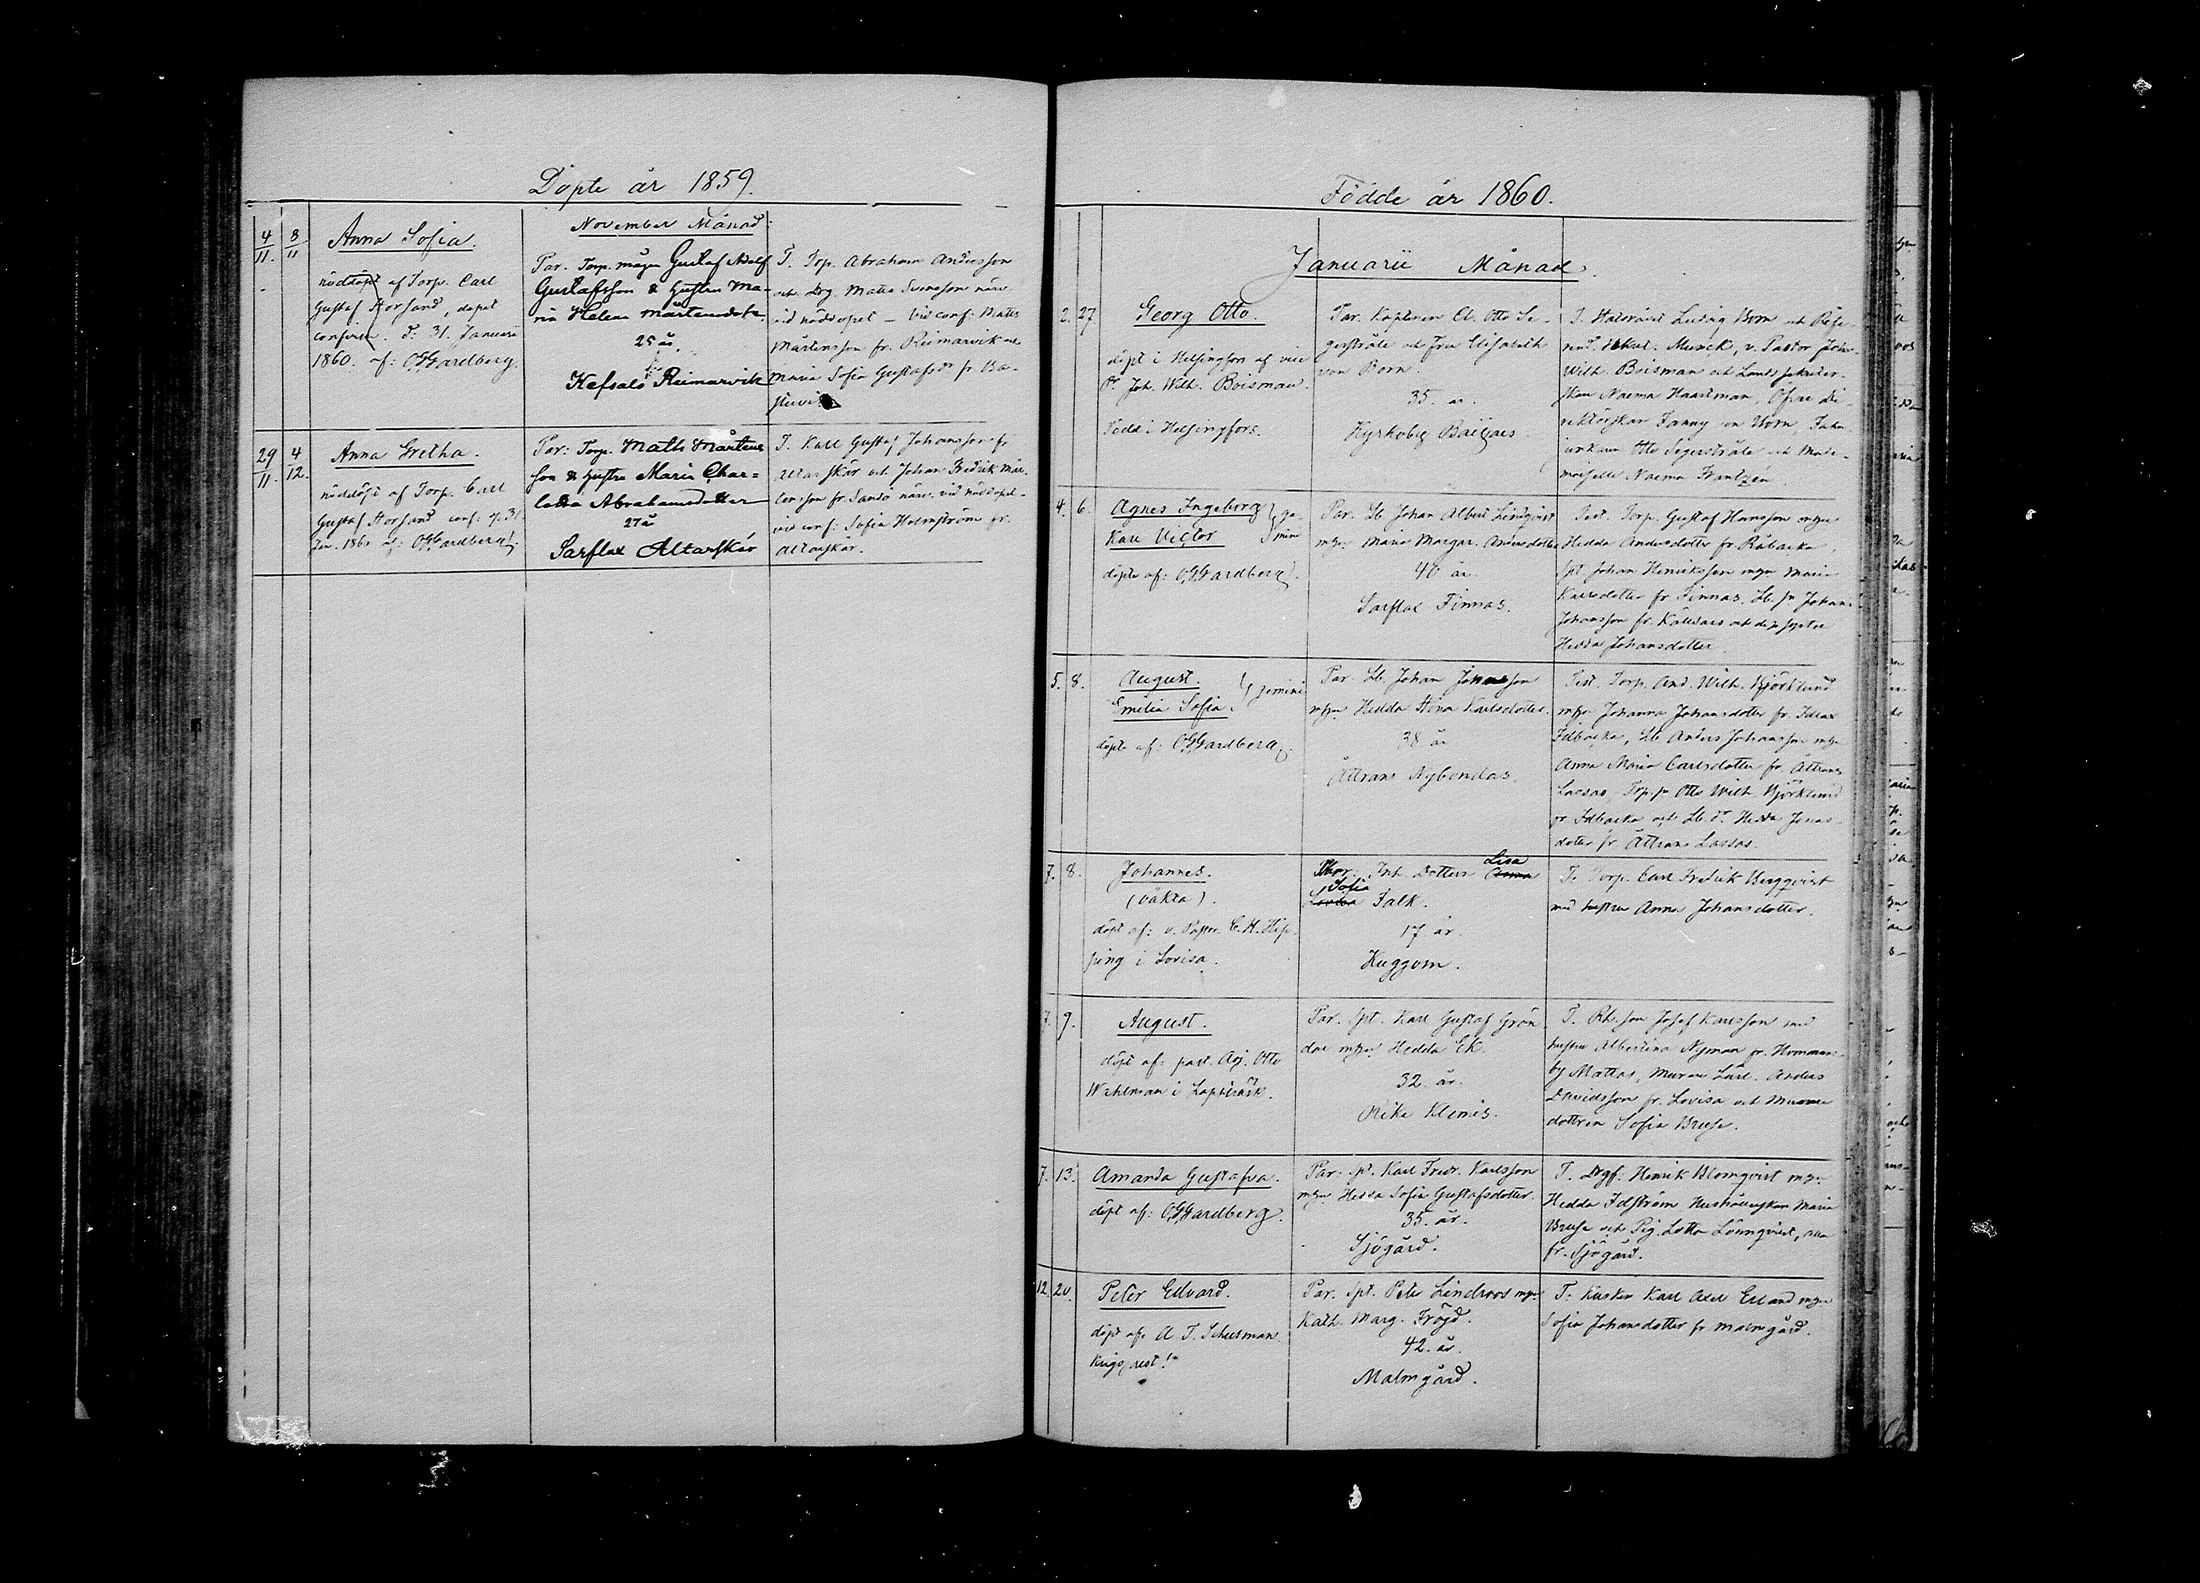 Döpte år 1859.
November Månad.
4/11. 8/11
Anna Sofia.
nöddöpt af Torp. Carl
Gustaf Korsand, dopet
confirm. d: 31. Januarii
1860. af: OGGardberg.
Par. Torp. mågen Gustaf Adolf
Gustafsson & hustru Ma-
ria Helena Mårtensdotr
25 år.
Kefsalö Reimarvik
T. Torp. Abraham Andersson
och Drg. Matts Svensson närv.
vid nöddopet – vid conf: Matts
Mårtensson fr. Reimarvik och
Maria Sofia Gustafsdr fr. Ba-
stuvik
29/11. 4/12.
Anna Gretha.
nöddöpt af Torp. Carl
Gustaf Korsand conf: d. 31.
Jan. 1860 af: OGGardberg.
Par: Torp. Matts Mårtens
son & hustru Maria Char-
lotta Abrahamsdotter
27 å
Sarflax Altarskär
T. Karl Gustaf Johansson fr.
Altarskär och Johan Fredrik Mår-
tensson fr. Sandö närv. vid nöddopet –
vid conf: Sofia Holmström fr.
Altarskär.
Födde år 1860.
Januarii Månad.
2. 27
Georg Otto.
döpt i Helsingfors af vice
P. Joh. Wilh. Boisman.
Född i Helsingfors.
Par. Kaptenen Otto Se-
gerstråle och Fru Elisabeth
von Born.
35. år.
Kyrkoby Baizars
T. Hofrådet Ludvig Born och
Munck, v. Pastor Joh.
Wilh. Boisman och
Naema Haartman,
Fanny von Born,
Otto Segerstråle och Made-
moiselle Naema Frantzén.
4. 6.
Agnes Ingeborg } ge-
Karl Victor } mini
döpte af: OGGardberg.
Par. Lb. Johan Albert Lindqvist
mhu Maria Margar. Andersdotter
40 år.
Sarflax Finnas.
Test. Torp. Gustaf Hansson mhu
Hedda Andersdotter fr. Råbacka,
Spt. Johan Henriksson mhu Maria
Karlsdotter fr Finnas. Lb. sn Johan
Johansson fr. Källsars och
Hedda Johansdotter.
5. 8.
August. } gemini
Emilia Sofia. }
döpte af: OGGardberg.
Par Lb. Johan Jonasson
mhu Hedda Stina Karlsdotter.
38 år
Åttrans Nybondas.
Test. Torp. And. Wilh. Björklund
mhu Johanna Johansdotter fr.
Idbacka, Lb. Anders Johansson mhu
Anna Maria Carlsdotter fr. Åttrans
Lassas, Torp. sn Otto Wilh. Björklund
fr Idbacka och Lb. dr Hedda Jonas-
dotter fr Åttrans Lassas.
7. 8.
Johannes.
(oäkta).
döpt af: v. Pastor. C. H. Hip-
ping i Lovisa.
Mor. Inh. dottern Anna Lisa
Lovisa Sofia Falk.
17. år.
Kuggom.
T. Torp. Carl Fredrik Bergqvist
med hustru Anna Johansdotter.
7. 9.
August.
döpt af: past. Adj. Otto
Wahlman i Lapträsk.
Par. Spt. Karl Gustaf Grön-
dal mhu Hedda Ek.
32. år.
Rike Klemis.
T. Rh. son Josef Karlsson med
hustru Albertina Nyman fr. Hommans-
by Mattas, Murare Lärl. Anders
Davidsson fr. Lovisa och Murare
dottren Sofia Bruse.
7. 13.
Amanda Gustafva.
döpt af: OGGardberg.
Par. Spt. Karl Fredr. Karlsson
mhu Hedda Sofia Gustafsdotter.
35. år.
Sjögård.
T. Drgf. Henrik Blomqvist mhu
Hedda Idström Hushållerskan Maria
Bruse och Pig. Lotta Lönnqvist, alla
fr. Sjögård.
12. 20.
Peter Edvard.
döpt af: A. F. Schulman
Krigsprest!
Par. Spt. Peter Lindroos mhu
Kath. Marg. Fröjd.
42. år.
Malmgård.
T. Kusken Karl Axel Erland mhu
Sofia Johansdotter fr Malmgård.